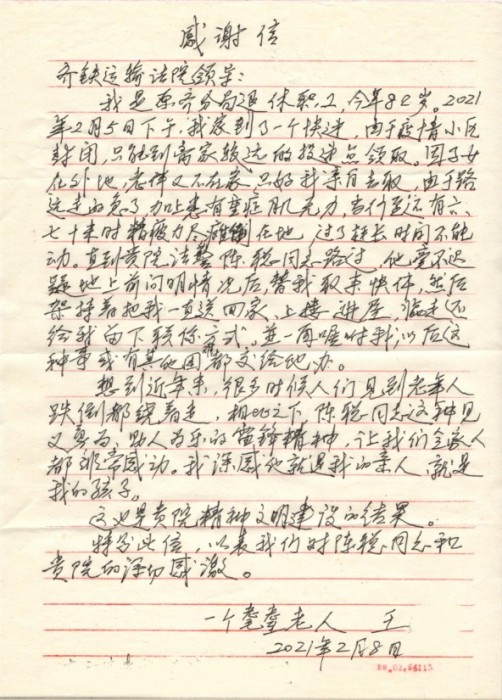 感谢信
齐铁运输法院领导:
我是原齐分局退休职工,今年80岁。2021
年2月5日下午,我家到了一个快递,由于疫情小区
封闭,只能到离家较远的投递点领取。因子女
在外地,老伴又不在家,只好我亲自去取,由于路
远走的急了,加上患有重症肌无力,当行至还有六、
七十米时精疲力尽瘫倒在地,过了挺长时间不能
动。直到贵院法警陈聪同志路过,他毫不迟
疑地上前问明情况后替我取来快件,然后
架持着把我一直送回家、上楼、进屋,临走还
给我留下联系方式,并一再嘱咐我以后这
种事或有其他困难都交给他办。
想到近年来,很多时候人们见到老年人
跌倒都绕着走,相比之下,陈聪同志这种见
义勇为、助人为乐的雷锋精神,让我们全家人
都非常感动。我深感他就是我的亲人,就是
我的孩子。
这也是贵院精神文明建设的结果。
特写此信,以表我们对陈聪同志和
贵院的深切感激。
一个耄耋老人 王
2021年2月8日